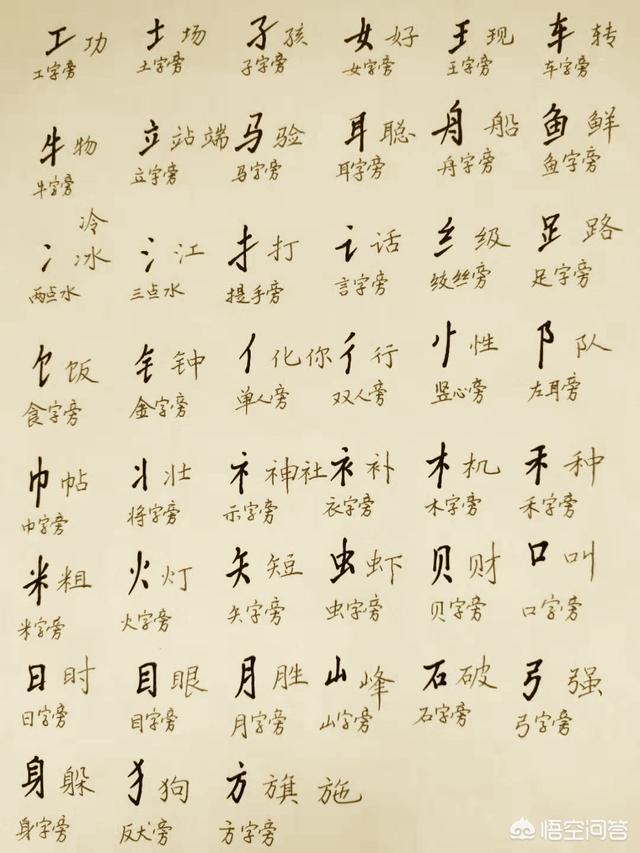 工 功 土 场 子 孩 女 好 王 现 车 转
工字旁 土字旁 子字旁 女字旁 王字旁 车字旁
牛 物 立 站 端 马 验 耳 聪 舟 船 鱼 鲜
牛字旁 立字旁 马字旁 耳字旁 舟字旁 鱼字旁
冷
冫 冰 氵 江 扌 打 讠 话 纟 级 𧾷 路
两点水 三点水 提手旁 言字旁 绞丝旁 足字旁
饣 饭 钅 钟 亻 化 你 彳 行 忄 性 阝 队
食字旁 金字旁 单人旁 双人旁 竖心旁 左耳旁
巾 帖 丬 壮 礻 神 社 衤 补 木 机 禾 种
巾字旁 将字旁 示字旁 衣字旁 木字旁 禾字旁
米 粗 火 灯 矢 短 虫 虾 贝 财 口 叫
米字旁 火字旁 矢字旁 虫字旁 贝字旁 口字旁
日 时 目 眼 月 胜 山 峰 石 破 弓 强
日字旁 目字旁 月字旁 山字旁 石字旁 弓字旁
身 躲 犭 狗 方 旗 施
身字旁 反犬旁 方字旁
悟空问答